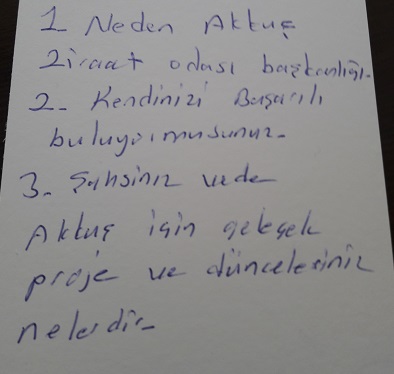 1 Neden Aktuş
Ziraat odası başkanlığı.
2- Kendinizi Başarılı
buluyormusunuz-
3- Şahsiniz vede
Aktuş için geleçek
proje ve düncelesiniz
nelerdir-